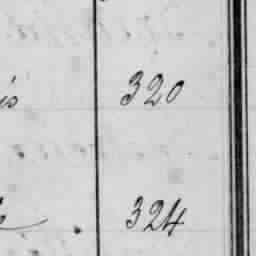 is 320
324